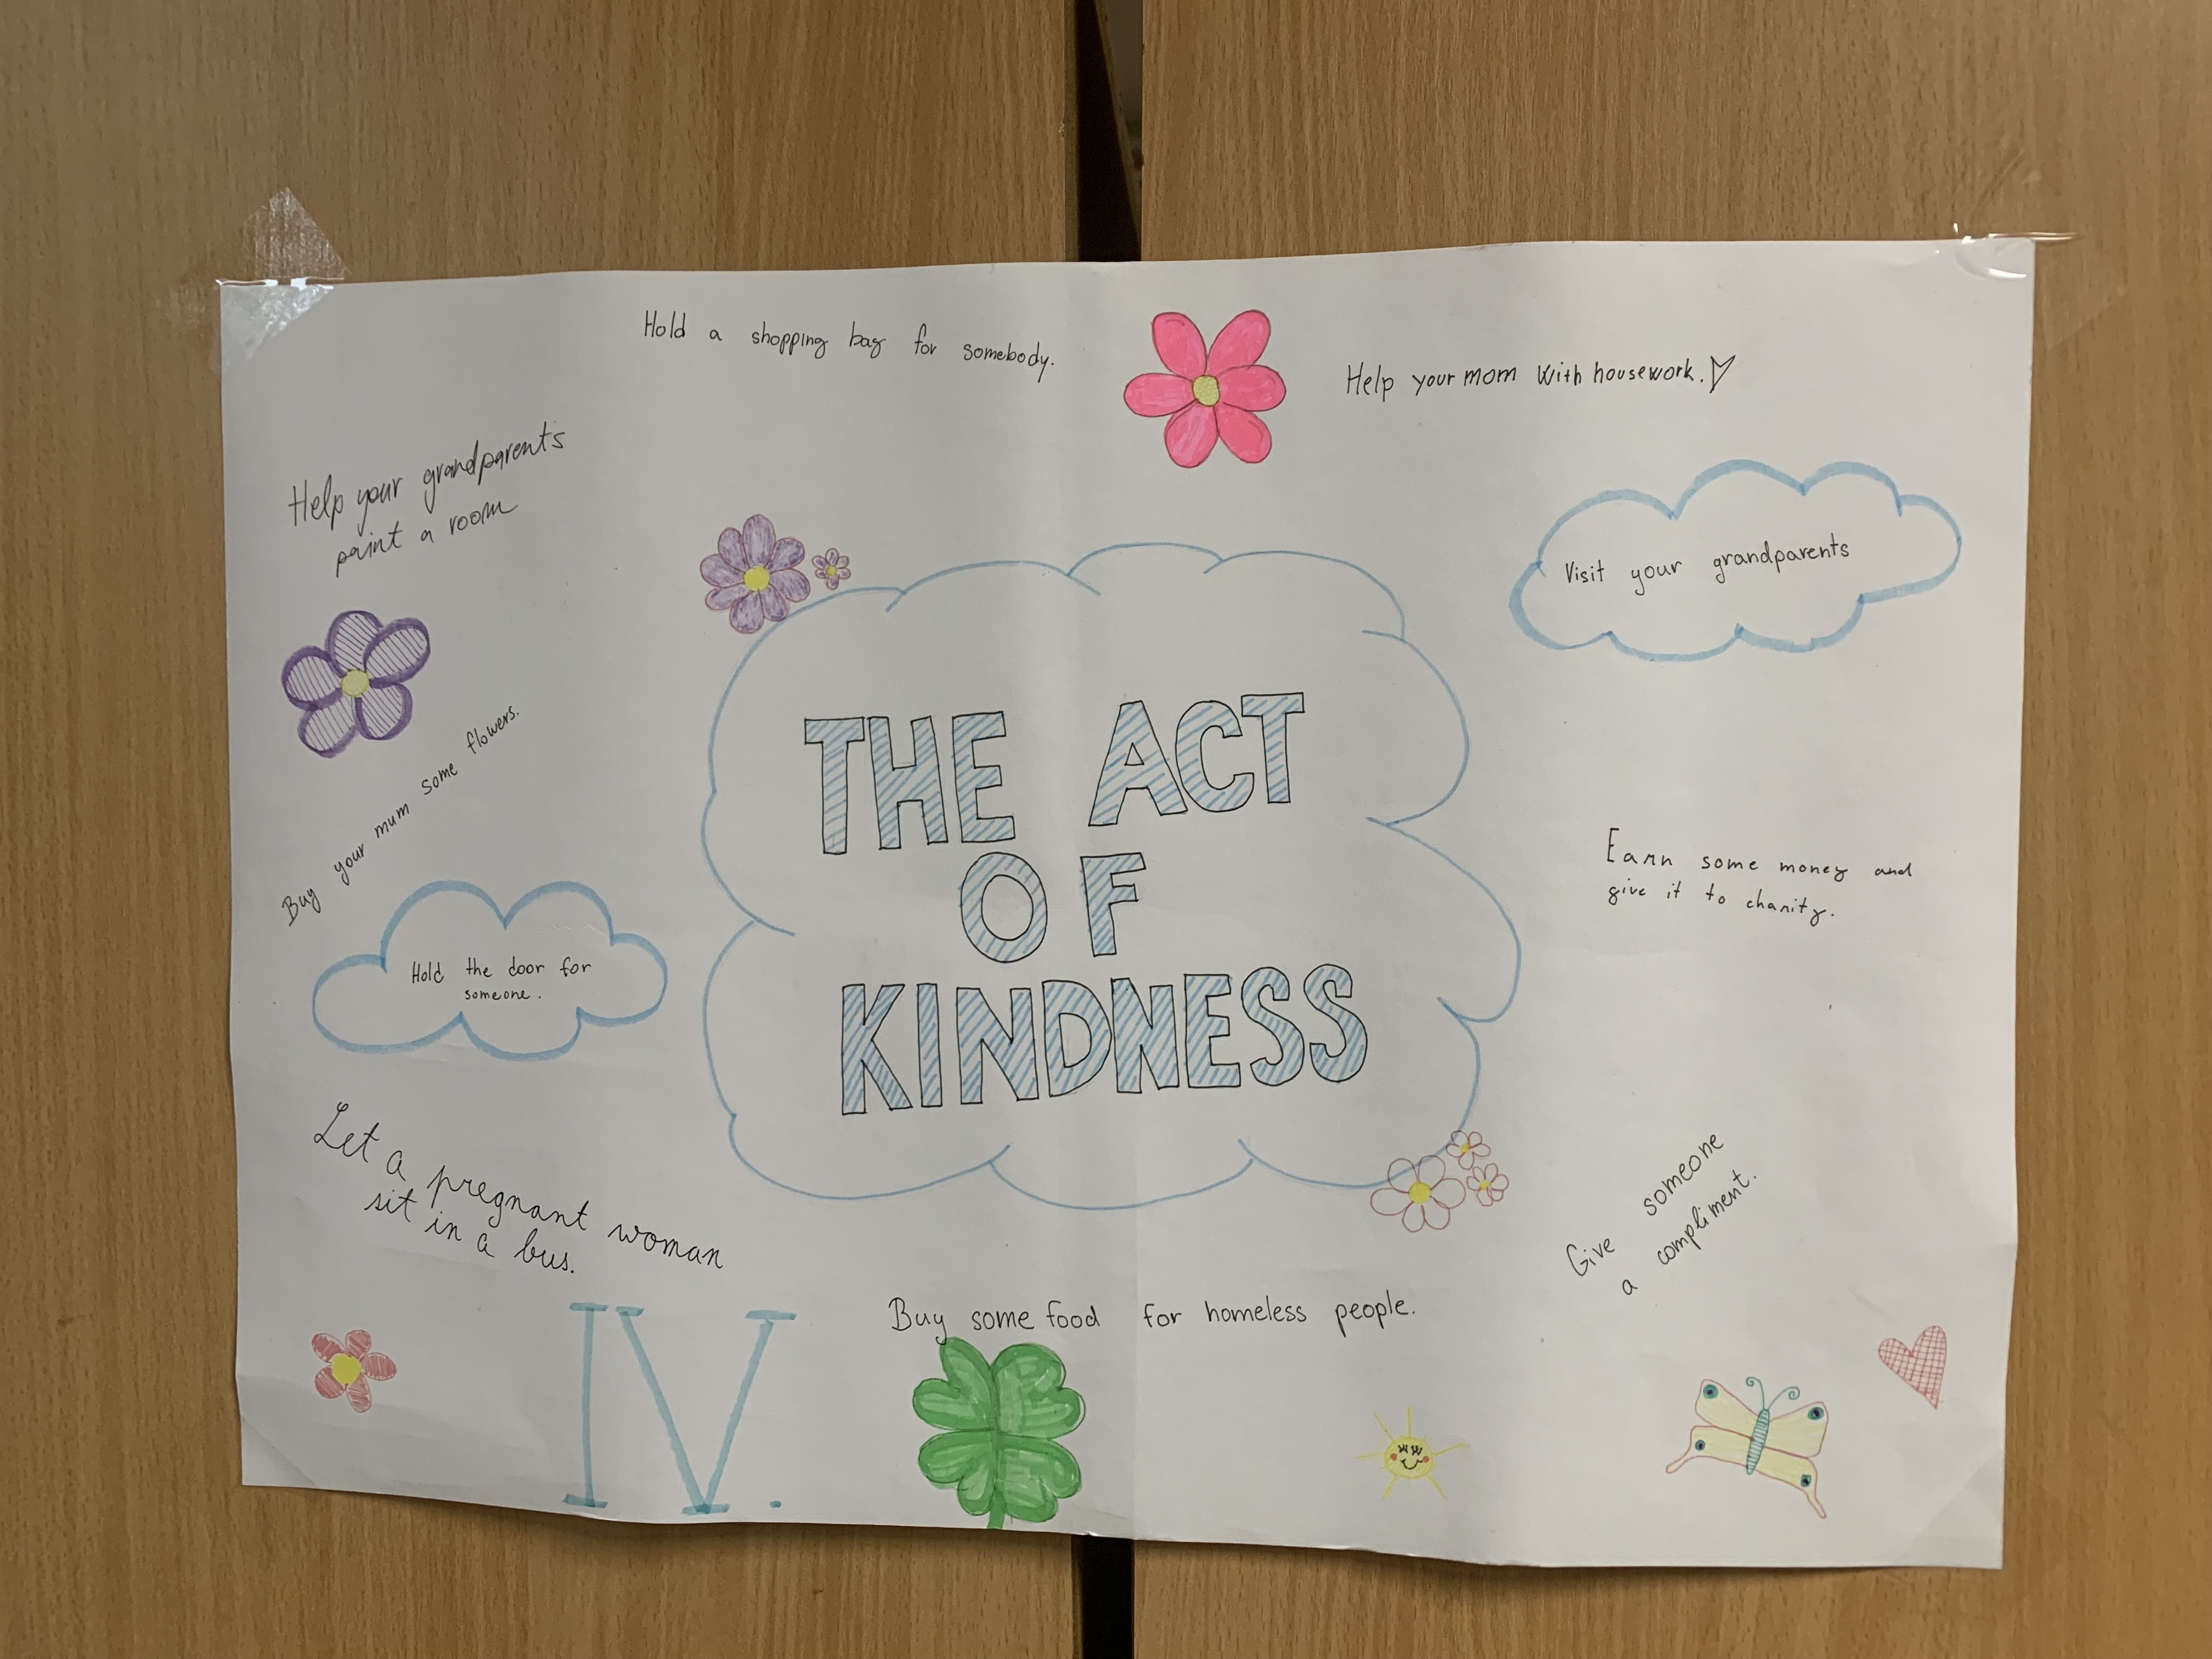 Hold a shopping bag for somebody.
Help your mom with housework.
Help your grandparents
paint a room
Visit your grandparents
Buy your mum some flowers.
THE ACT
OF
KINDNESS
Earn some money and
give it to charity.
Hold the door for
someone.
Let a pregnant woman
sit in a bus.
Give someone
a compliment.
Buy some food for homeless people.
IV.